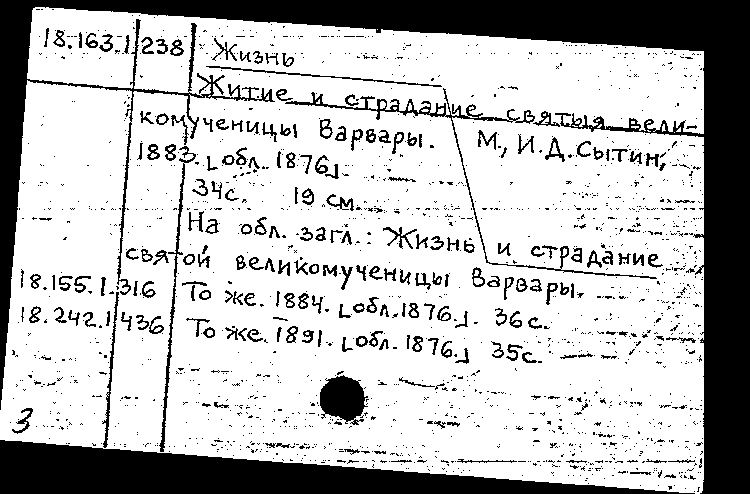 18.163.1.238 Жизнь
Житие и страдание святыя вели-
комученицы Варвары. М., И.Д.Сытин,
1883. [обл. 1876].
34с. 19 см.
На обл. загл.: Жизнь и страдание
святой великомученицы Варвары.
18.155.1.316 То же. 1884. [обл. 1876.]. 36с.
18.242.1.436 То же. 1891. [обл. 1876.] 35с.
3